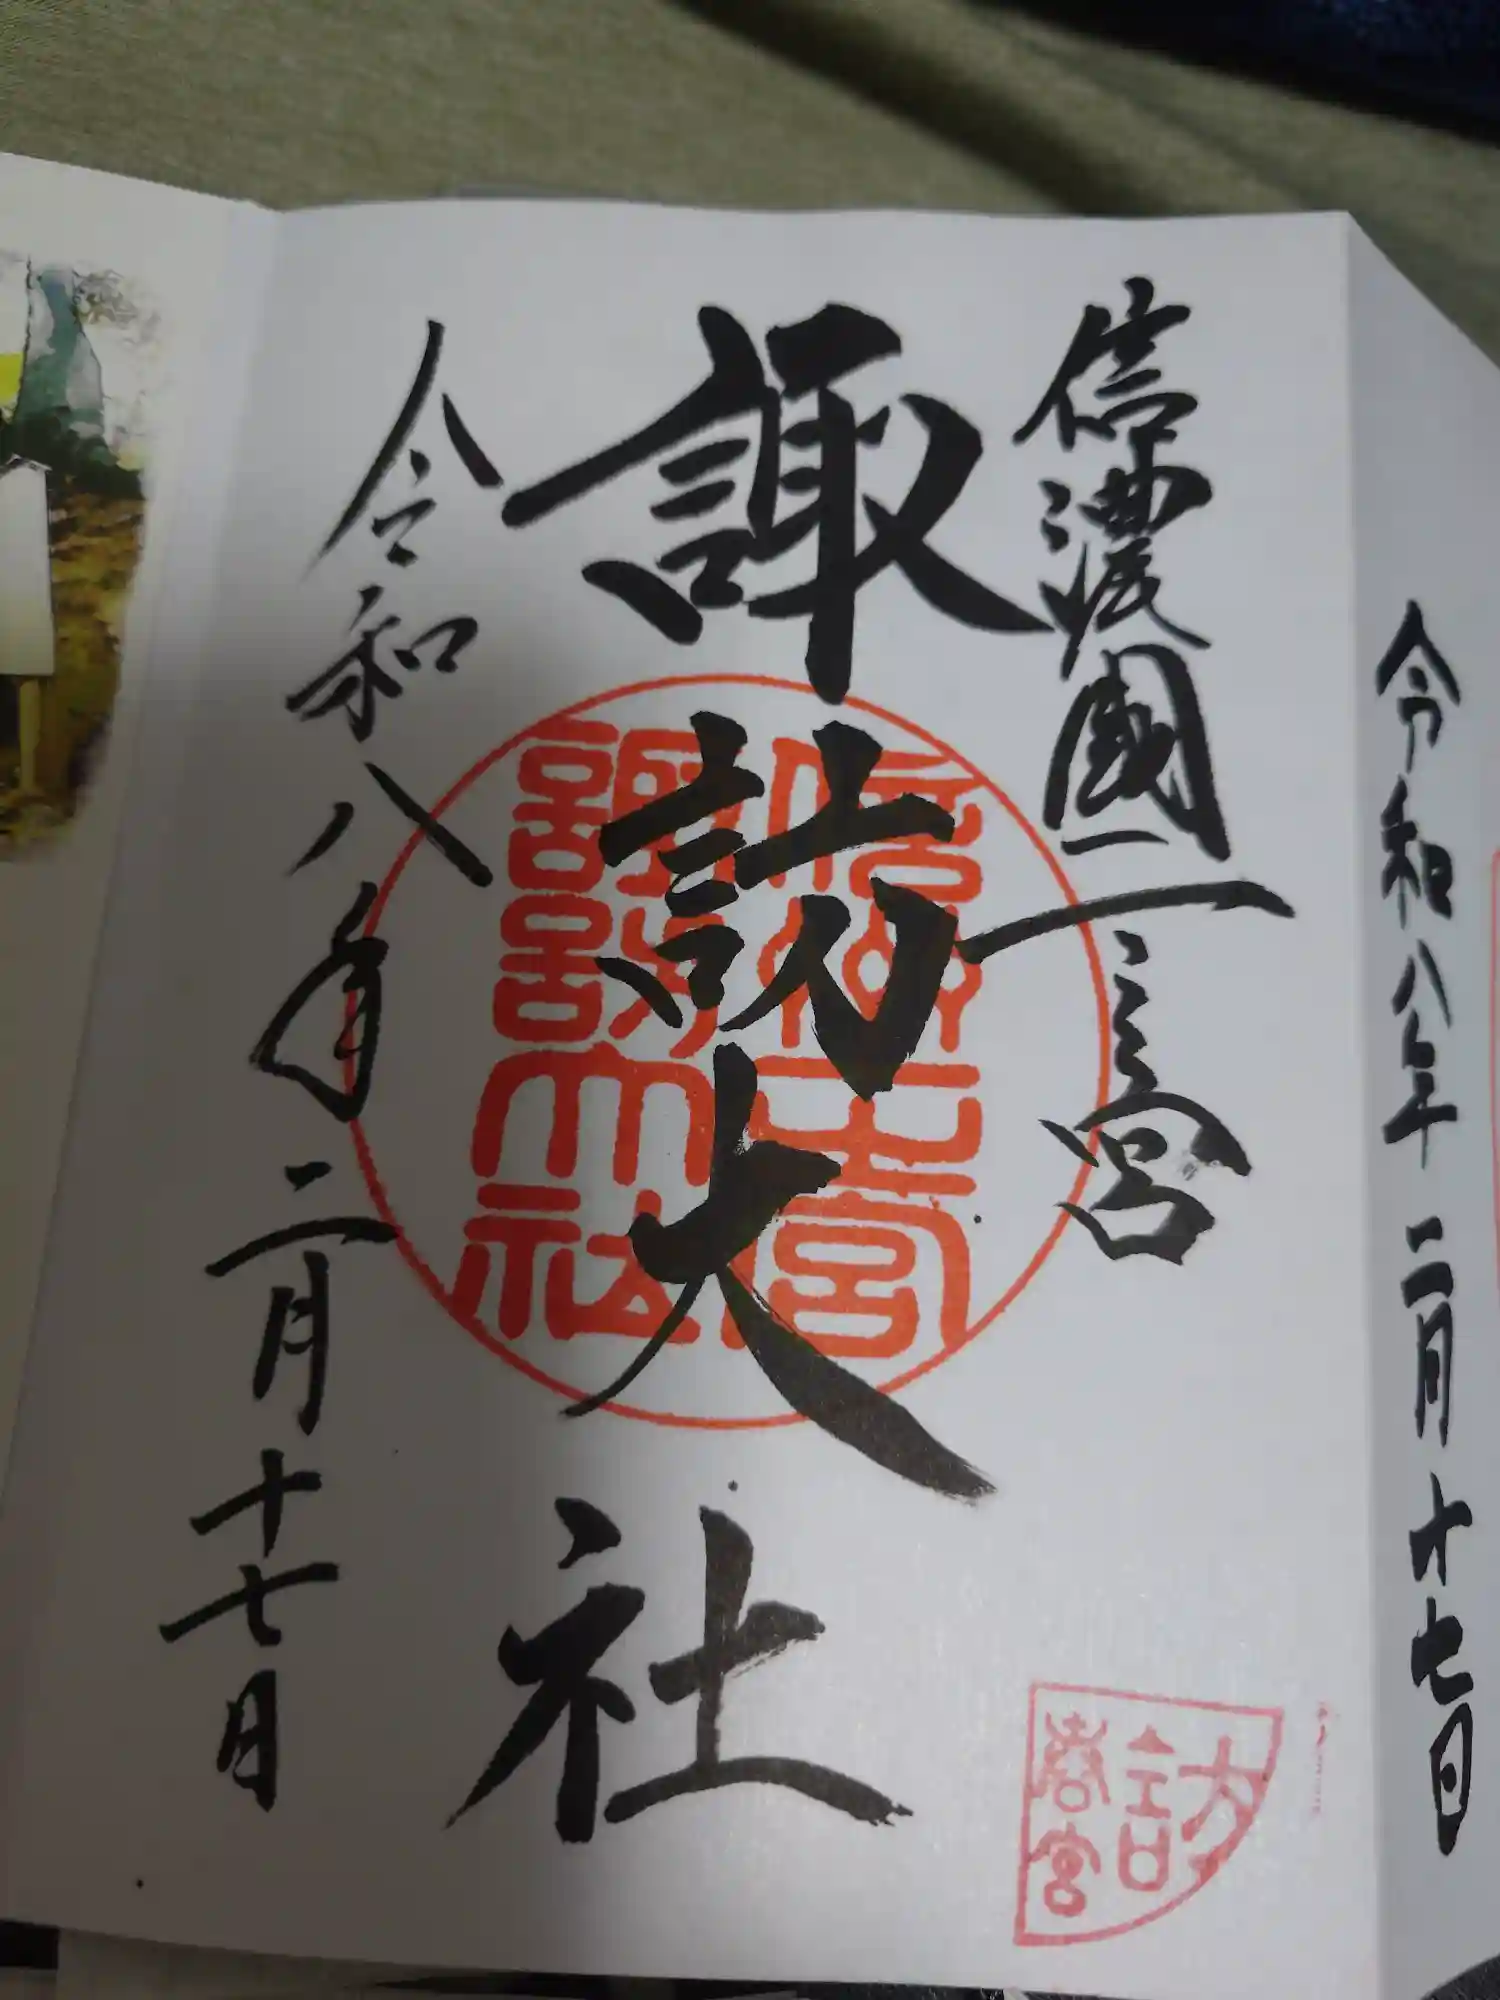 令和八年二月十七日
信濃國一之宮
諏訪大社
令和八年二月十七日
信濃一宮
諏訪大社